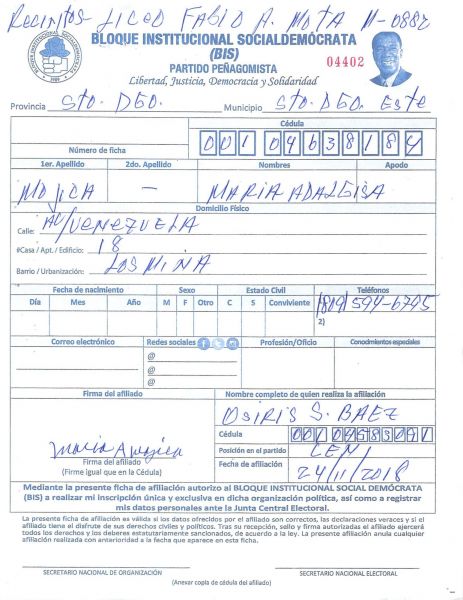 Recinto: LICEO FABIO A. MOTA 11-0882
BLOQUE INSTITUCIONAL SOCIALDEMÓCRATA
(BIS)
04402
PARTIDO PEÑAGOMISTA
Libertad, Justicia, Democracia y Solidaridad
Provincia STO. DGO. Municipio STO. DGO. ESTE
Número de ficha Cédula 001 0463818 4
1er. Apellido 2do. Apellido Nombres Apodo
MOJICA — MARIA ADALGISA
Domicilio Físico
Calle: AV/VENEZUELA
#Casa / Apt. / Edificio: 18
Barrio / Urbanización: LOS MINA
Fecha de nacimiento Sexo Estado Civil Teléfonos
Día Mes Año M F Otro C S Conviviente (809) 594-6795
2)
Correo electrónico Redes sociales Profesión/Oficio Conocimientos especiales
@
@
@
Firma del afiliado Nombre completo de quien realiza la afiliación
OSIRIS S. BAEZ
Cédula
Maria Mojica Posición en el partido CEN
Firma del afiliado Fecha de afiliación 24/11/2018
(Firme igual que en la Cédula)
Mediante la presente ficha de afiliación autorizo al BLOQUE INSTITUCIONAL SOCIAL DEMÓCRATA
(BIS) a realizar mi inscripción única y exclusiva en dicha organización política, así como a registrar
mis datos personales ante la Junta Central Electoral.
La presente ficha de afiliación es válida si los datos ofrecidos por el afiliado son correctos, las declaraciones veraces y si el
afiliado tiene el disfrute de sus derechos civiles y políticos. Tras su recepción, sello y firma autorizadas el afiliado ejercerá
todos los derechos y los deberes estatutariamente sancionados, de acuerdo a la ley. La presente afiliación anula cualquier
afiliación realizada con anterioridad a la fecha que aparece en esta ficha.
SECRETARIO NACIONAL DE ORGANIZACIÓN SECRETARIO NACIONAL ELECTORAL
(Anexar copia de cédula del afiliado)